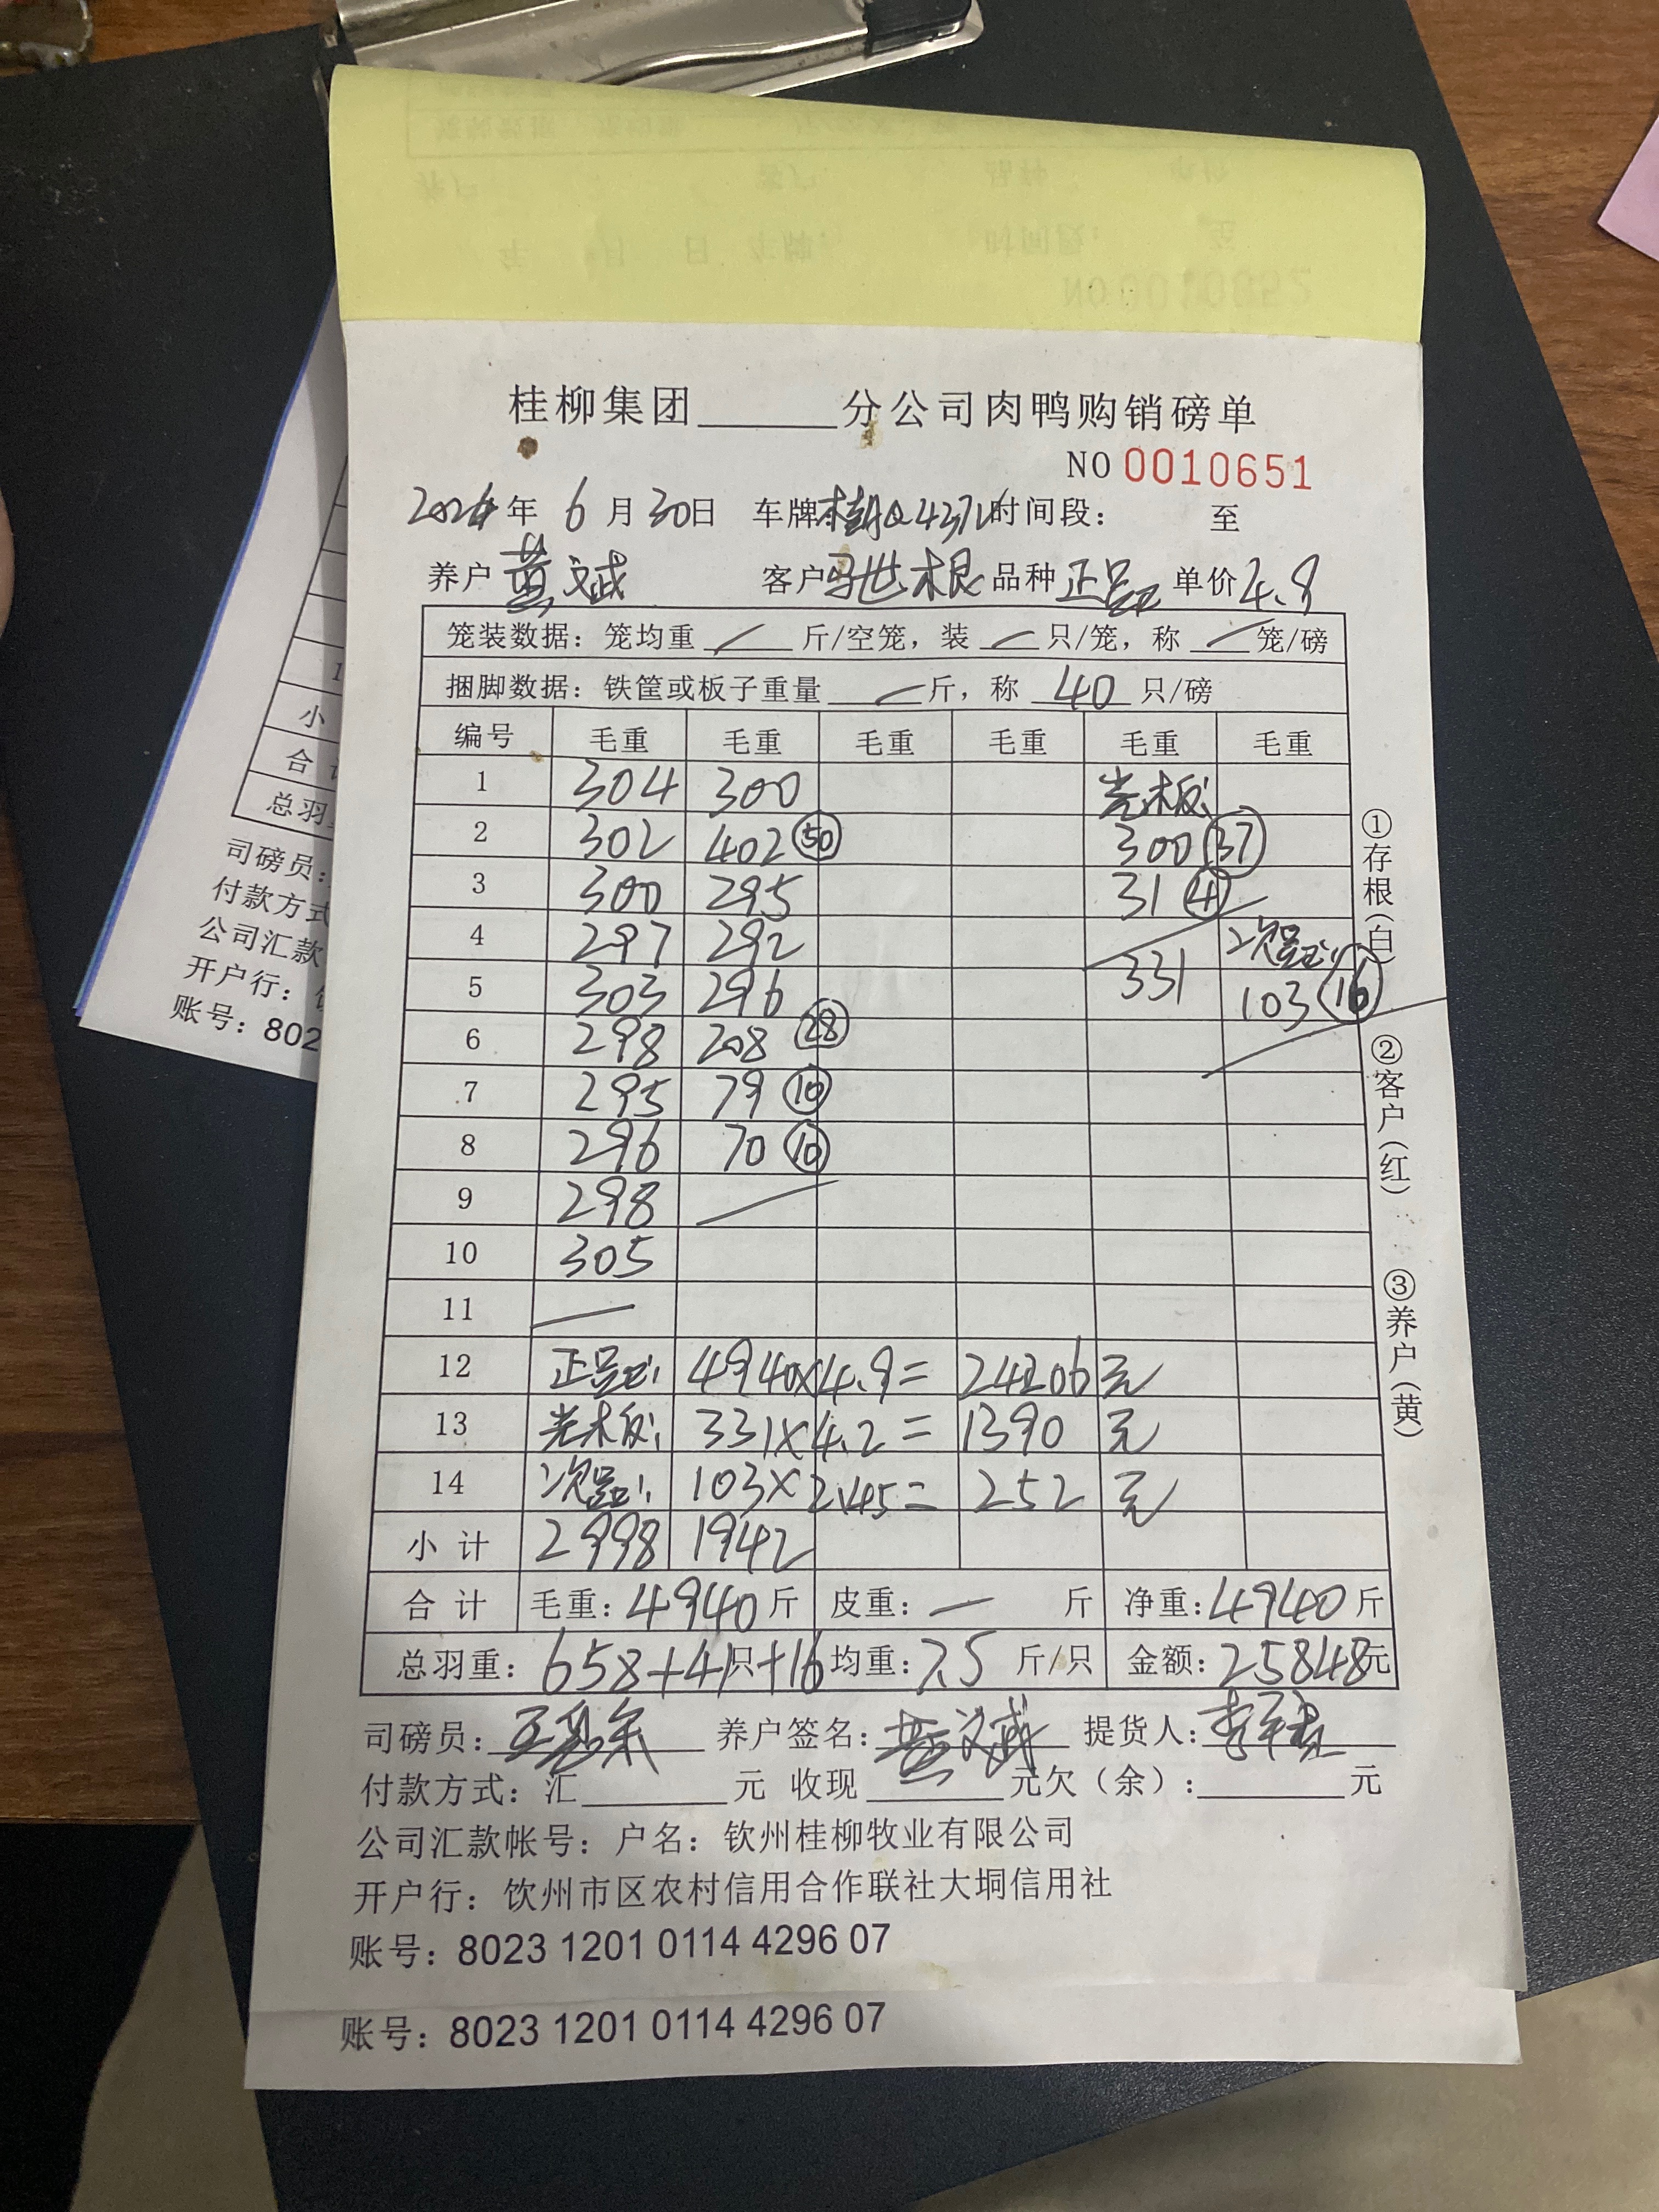 桂柳集团______分公司肉鸭购销磅单
NO 0010651
年 6 月 30日 车牌 时间段: 至
养户 黄文斌 客户 马世根 品种 正品 单价 4.9
笼装数据: 笼均重 / 斤/空笼, 装 / 只/笼, 称 / 笼/磅
捆脚数据: 铁筐或板子重量 / 斤, 称 40 只/磅
编号 毛重 毛重 毛重 毛重 毛重 毛重
1 304 300 光板:
2 302 402 50 300 37
3 300 295 31 4
4 297 292 次品:
5 303 296 331 103 16
6 298 208 28
7 295 79 10
8 296 70 10
9 298
10 305
11
12 正品: 4940×4.9= 24206元
13 光板: 331×4.2= 1390 元
14 次品: 103×2.45= 252 元
小计 2998 1942
合计 毛重: 4940 斤 皮重: — 斤 净重: 4940 斤
总羽重: 658+41只+16 均重: 7.5 斤/只 金额: 25848元
司磅员: 养户签名: 黄文斌 提货人:
付款方式: 汇______元 收现______元欠(余):______元
公司汇款帐号: 户名: 钦州桂柳牧业有限公司
开户行: 饮州市区农村信用合作联社大垌信用社
账号: 8023 1201 0114 4296 07
账号: 8023 1201 0114 4296 07
①存根(白)
②客户(红)
③养户(黄)
小
合
总羽
司磅员:
付款方式
公司汇款
开户行:
账号: 802